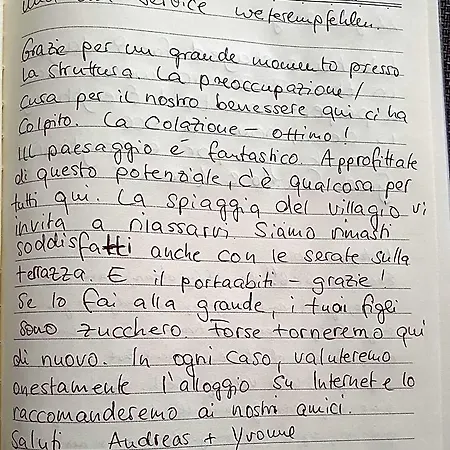 service weiterempfehlen.
Grazie per un grande momento presso
la struttura. La preoccupazione /
cura per il nostro benessere qui ci ha
colpito. La colazione - ottimo!
Il paesaggio é fantastico. Approfittate
di questo potenziale, c'è qualcosa per
tutti qui. La spiaggia del villagio vi
invita a rilassarvi. Siamo rimasti
soddisfatti anche con le serate sulla
terrazza. E il portaabiti - grazie!
Se lo fai alla grande, i tuoi figli
sono zucchero. Forse torneremo qui
di nuovo. In ogni caso, valuteremo
onestamente l'alloggio su Internet e lo
raccomanderemo ai nostri amici.
Saluti Andreas + Yvonne